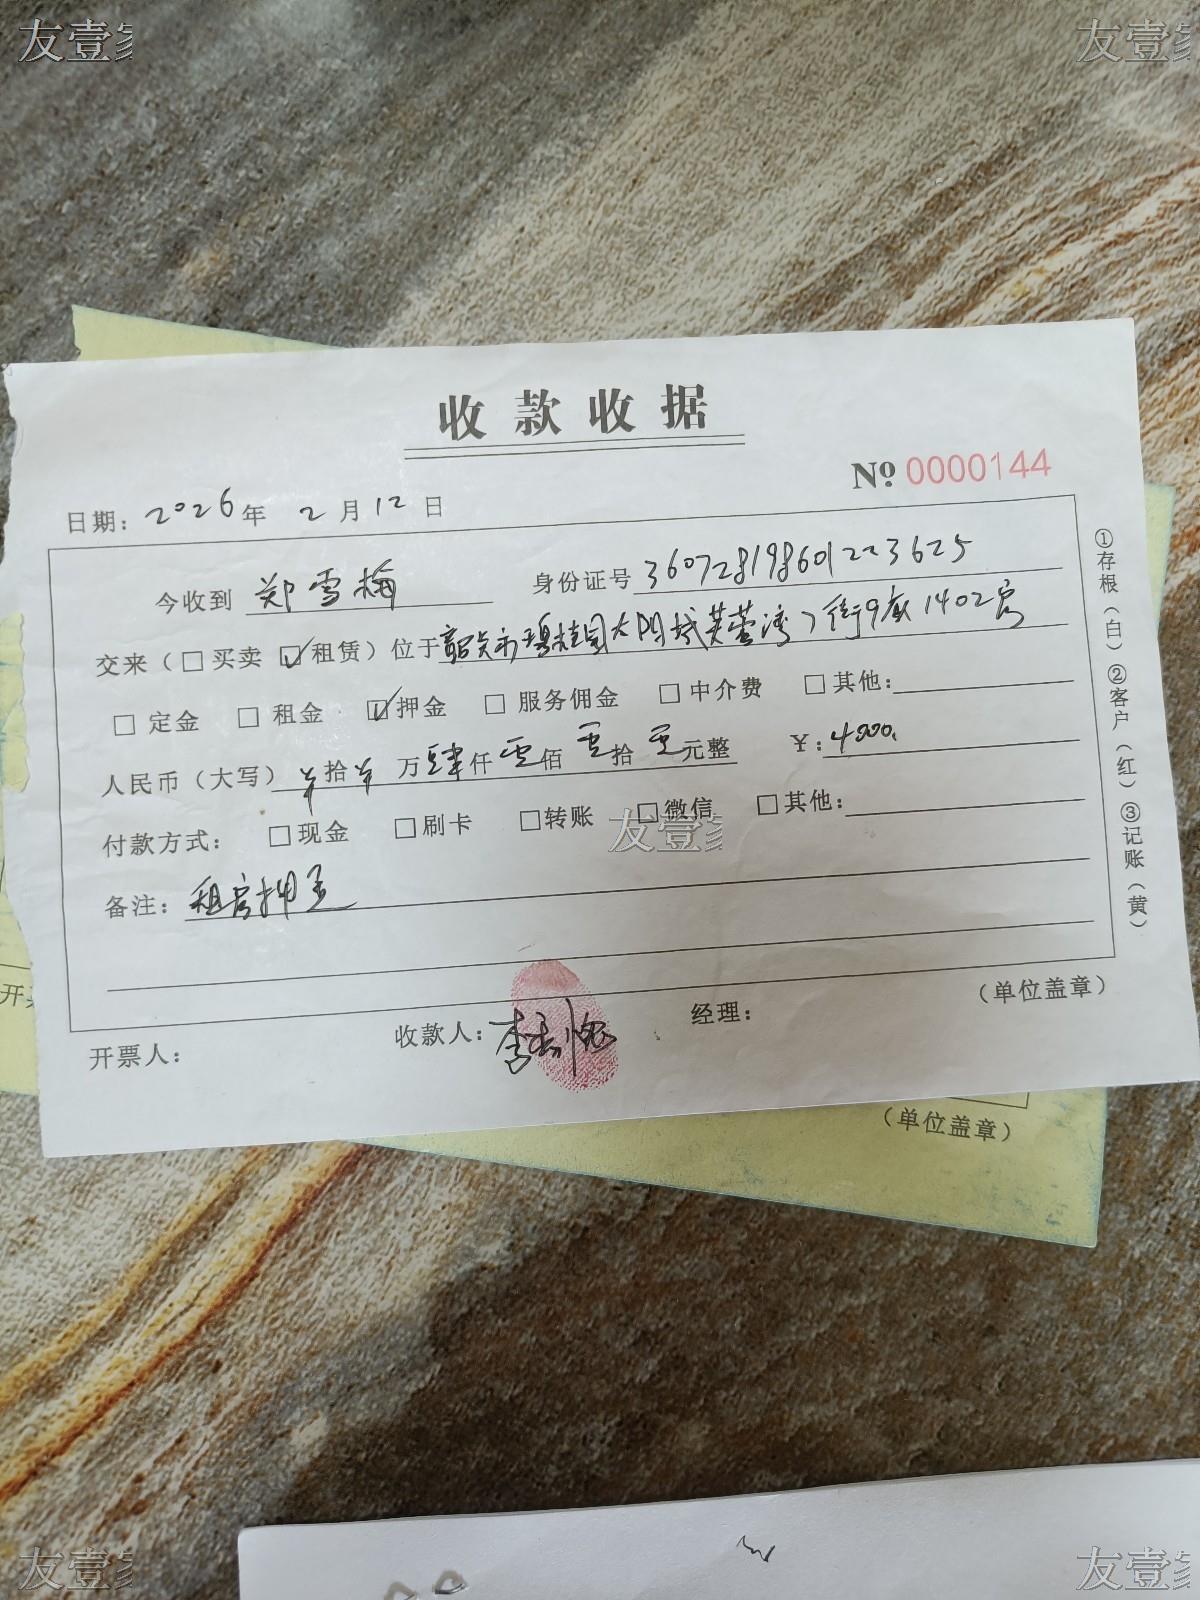 友壹家 友壹家
收款收据
№ 0000144
日期：2026年 2月12日
今收到 郑雪梅 身份证号 360728198601223625
交来（□买卖 ☑租赁）位于韶关市碧桂园太阳城芙蓉湾7街9座1402房
□ 定金 □ 租金 ☑押金 □ 服务佣金 □中介费 □其他：
人民币（大写）拾 万肆仟零佰零拾零元整 ￥：4000.
付款方式： □现金 □刷卡 □转账 □微信 □其他：
友壹家
备注：租房押金
①存根（白）②客户（红）③记账（黄）
（单位盖章）
开票人： 收款人：李 经理：
开票
（单位盖章）
友壹家 友壹家